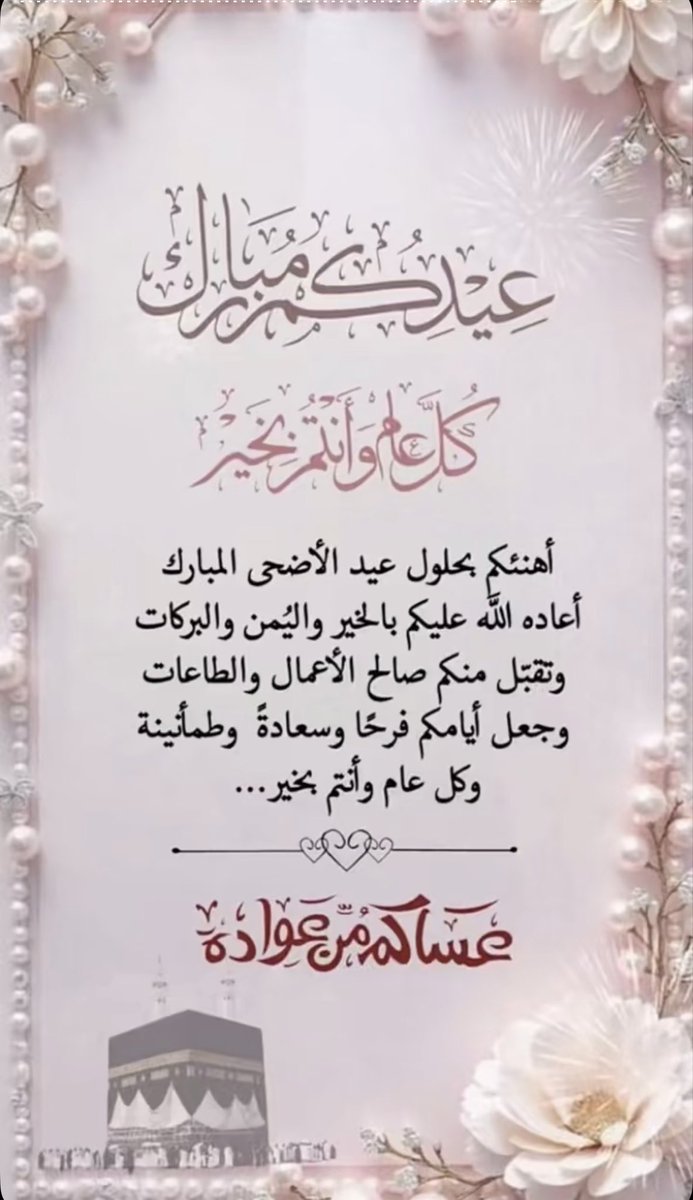 عِيْدِكُم مُبَارَك
كُلَّ عام وَأَنْتُمْ بِخَيْر
أهنئكم بحلول عيد الأضحى المبارك
أعاده اللَّه عليكم بالخير واليُمن والبركات
وتقبّل منكم صالح الأعمال والطاعات
وجعل أيامكم فرحًا وسعادةً وطمأنينة
وكل عام وأنتم بخير...
عساكم من عواده